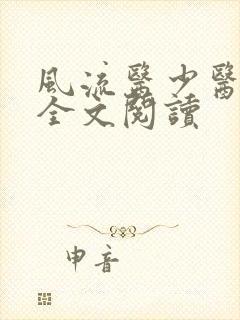 風流醫少醫
全文閱讀
申音